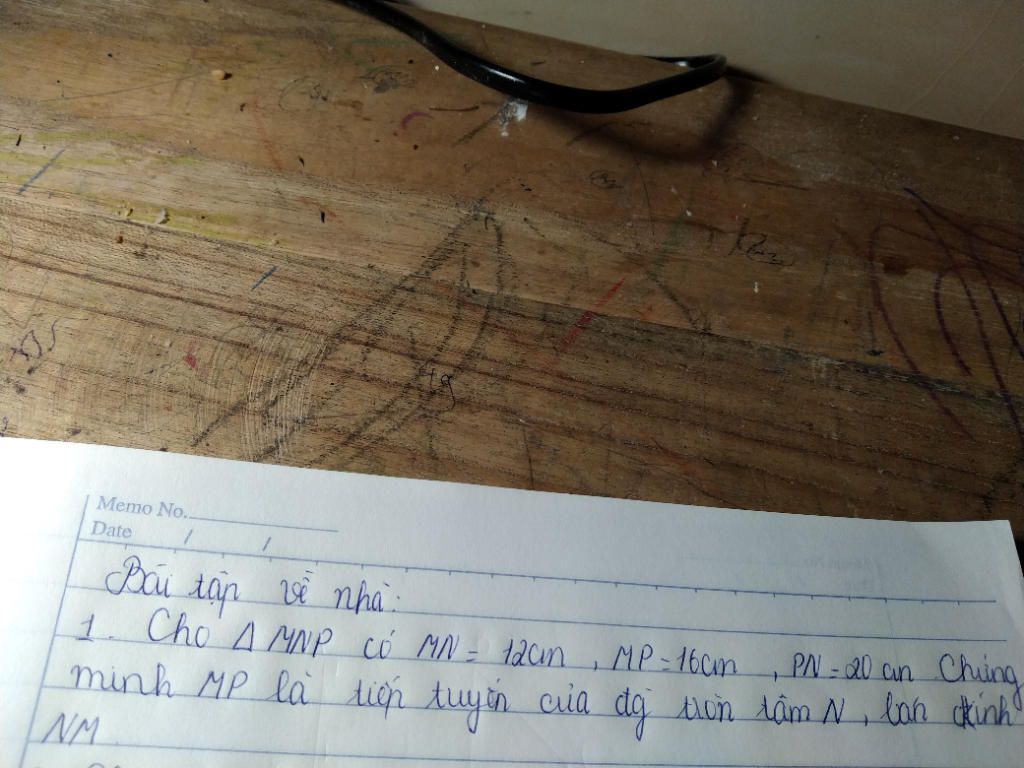 Memo No.
Date / /
Bài tập về nhà:
1. Cho Δ MNP có MN = 12cm , MP = 16cm , PN = 20 cm Chứng
minh MP là tiếp tuyến của đg tròn tâm N , bán kính
NM